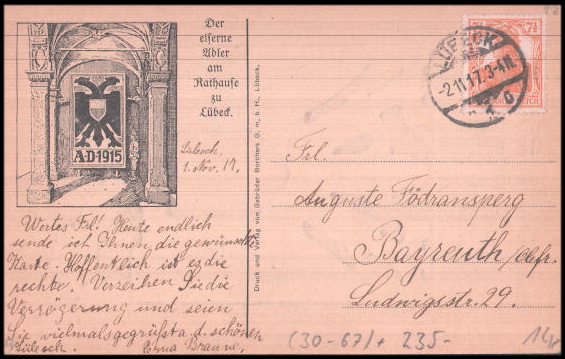 Der
eiserne
Adler
am
Rathause
zu
Lübeck.
A·D·1915
Lübeck,
1. Nov. 17.
Wertes Frl.! Heute endlich
sende ich Ihnen die gewünschte
Karte. Hoffentlich ist es die
rechte. Verzeihen Sie die
Verzögerung und seien
Sie vielmals gegrüßt a. d. schönen
Lübeck. Erna Braune.
Druck und Verlag von Gebrüder Borchers G. m. b. H., Lübeck.
LÜBECK
-2.11.17.3-4N.
7½
Frl.
Auguste Födransperg
Bayreuth, Obfr.
Ludwigsstr. 29.
(30-67)+ 235-